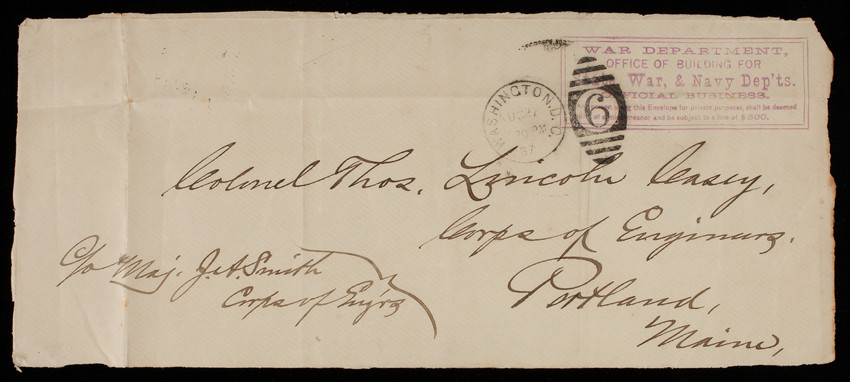 WAR DEPARTMENT,
OFFICE OF BUILDING FOR
War, & Navy Dep'ts.
OFFICIAL BUSINESS.
using this Envelope for private purposes, shall be deemed
and be subject to a fine of $300.
WASHINGTON, D.C.
87
6
Colonel Thos. Lincoln Casey,
Corps of Engineers.
Portland,
Maine,
c/o Maj. J.A. Smith
Corps of Eng'rs